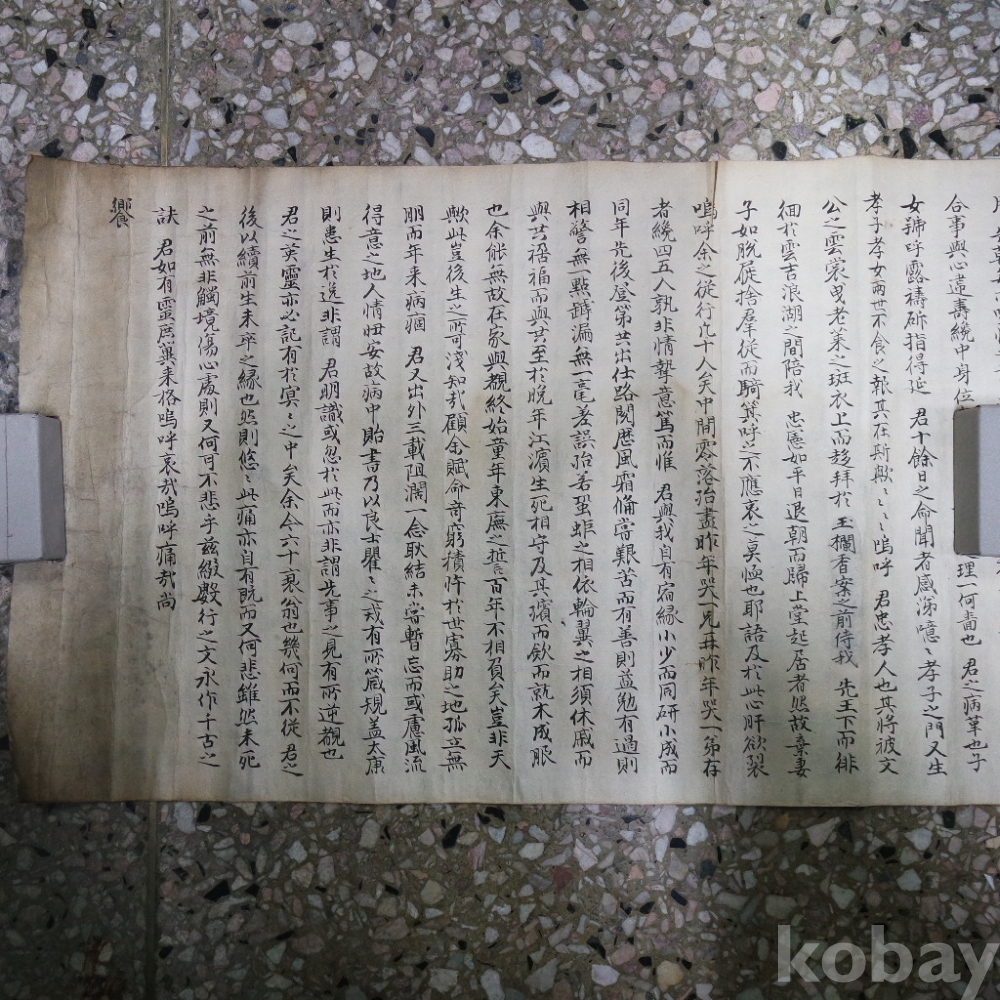 合事與心違壽纔中身位
理一何嗇也 君之病革也子
女號呼露禱斫指得延 君十餘日之命聞者感涕噫噫孝子之門又生
孝子孝女兩世不食之報其在斯歟在斯歟嗚呼 君忠孝人也其將被文
公之雲裳曳老萊之斑衣上而趍拜於 玉欄香案之前侍我 先王下而徘
徊於雲吉浪湖之間陪我 忠憲如平日退朝而歸上堂起居者然故棄妻
子如脫屣捨羣從而騎箕呼之不應哀之莫恤也耶語及於此心肝欲裂
嗚呼余之從行凡十人矣中間零落殆盡昨年哭一兄再昨年哭一弟存
者纔四五人孰非情摯意篤而惟 君與我自有宿緣小少而同研小成而
同年先後登第共出仕路閱歷風霜備嘗艱苦而有善則益勉有過則
相警無一點罅漏無一毫差誤殆若蛩蚷之相依輪翼之相須休戚而
與共禍福而與共至於晚年江濱生死相守及其殯而斂而就木成服
也余能無故在家與觀終始童年東廡之誓百年不相負矣豈非天
歟此豈後生之所可淺知哉顧余賦命奇窮積忤於世寡助之地孤立無
朋而年來病痼 君又出外三載阻濶一念耿結未嘗暫忘而或慮風流
得意之地人情忸安故病中貽書乃以良士瞿瞿之戒有所箴規盖太康
則患生於逸非謂 君明識或忽於此而亦非謂先事之見有所逆覩也
君之英靈亦必記有於冥冥之中矣余今六十衰翁也幾何而不從 君之
後以續前生未卒之緣也然則悠悠此痛亦自有既而又何悲雖然未死
之前無非觸境傷心處則又何可不悲乎玆綴數行之文永作千古之
訣 君如有靈庶幾來格嗚呼哀哉嗚呼痛哉尚
饗
kobay